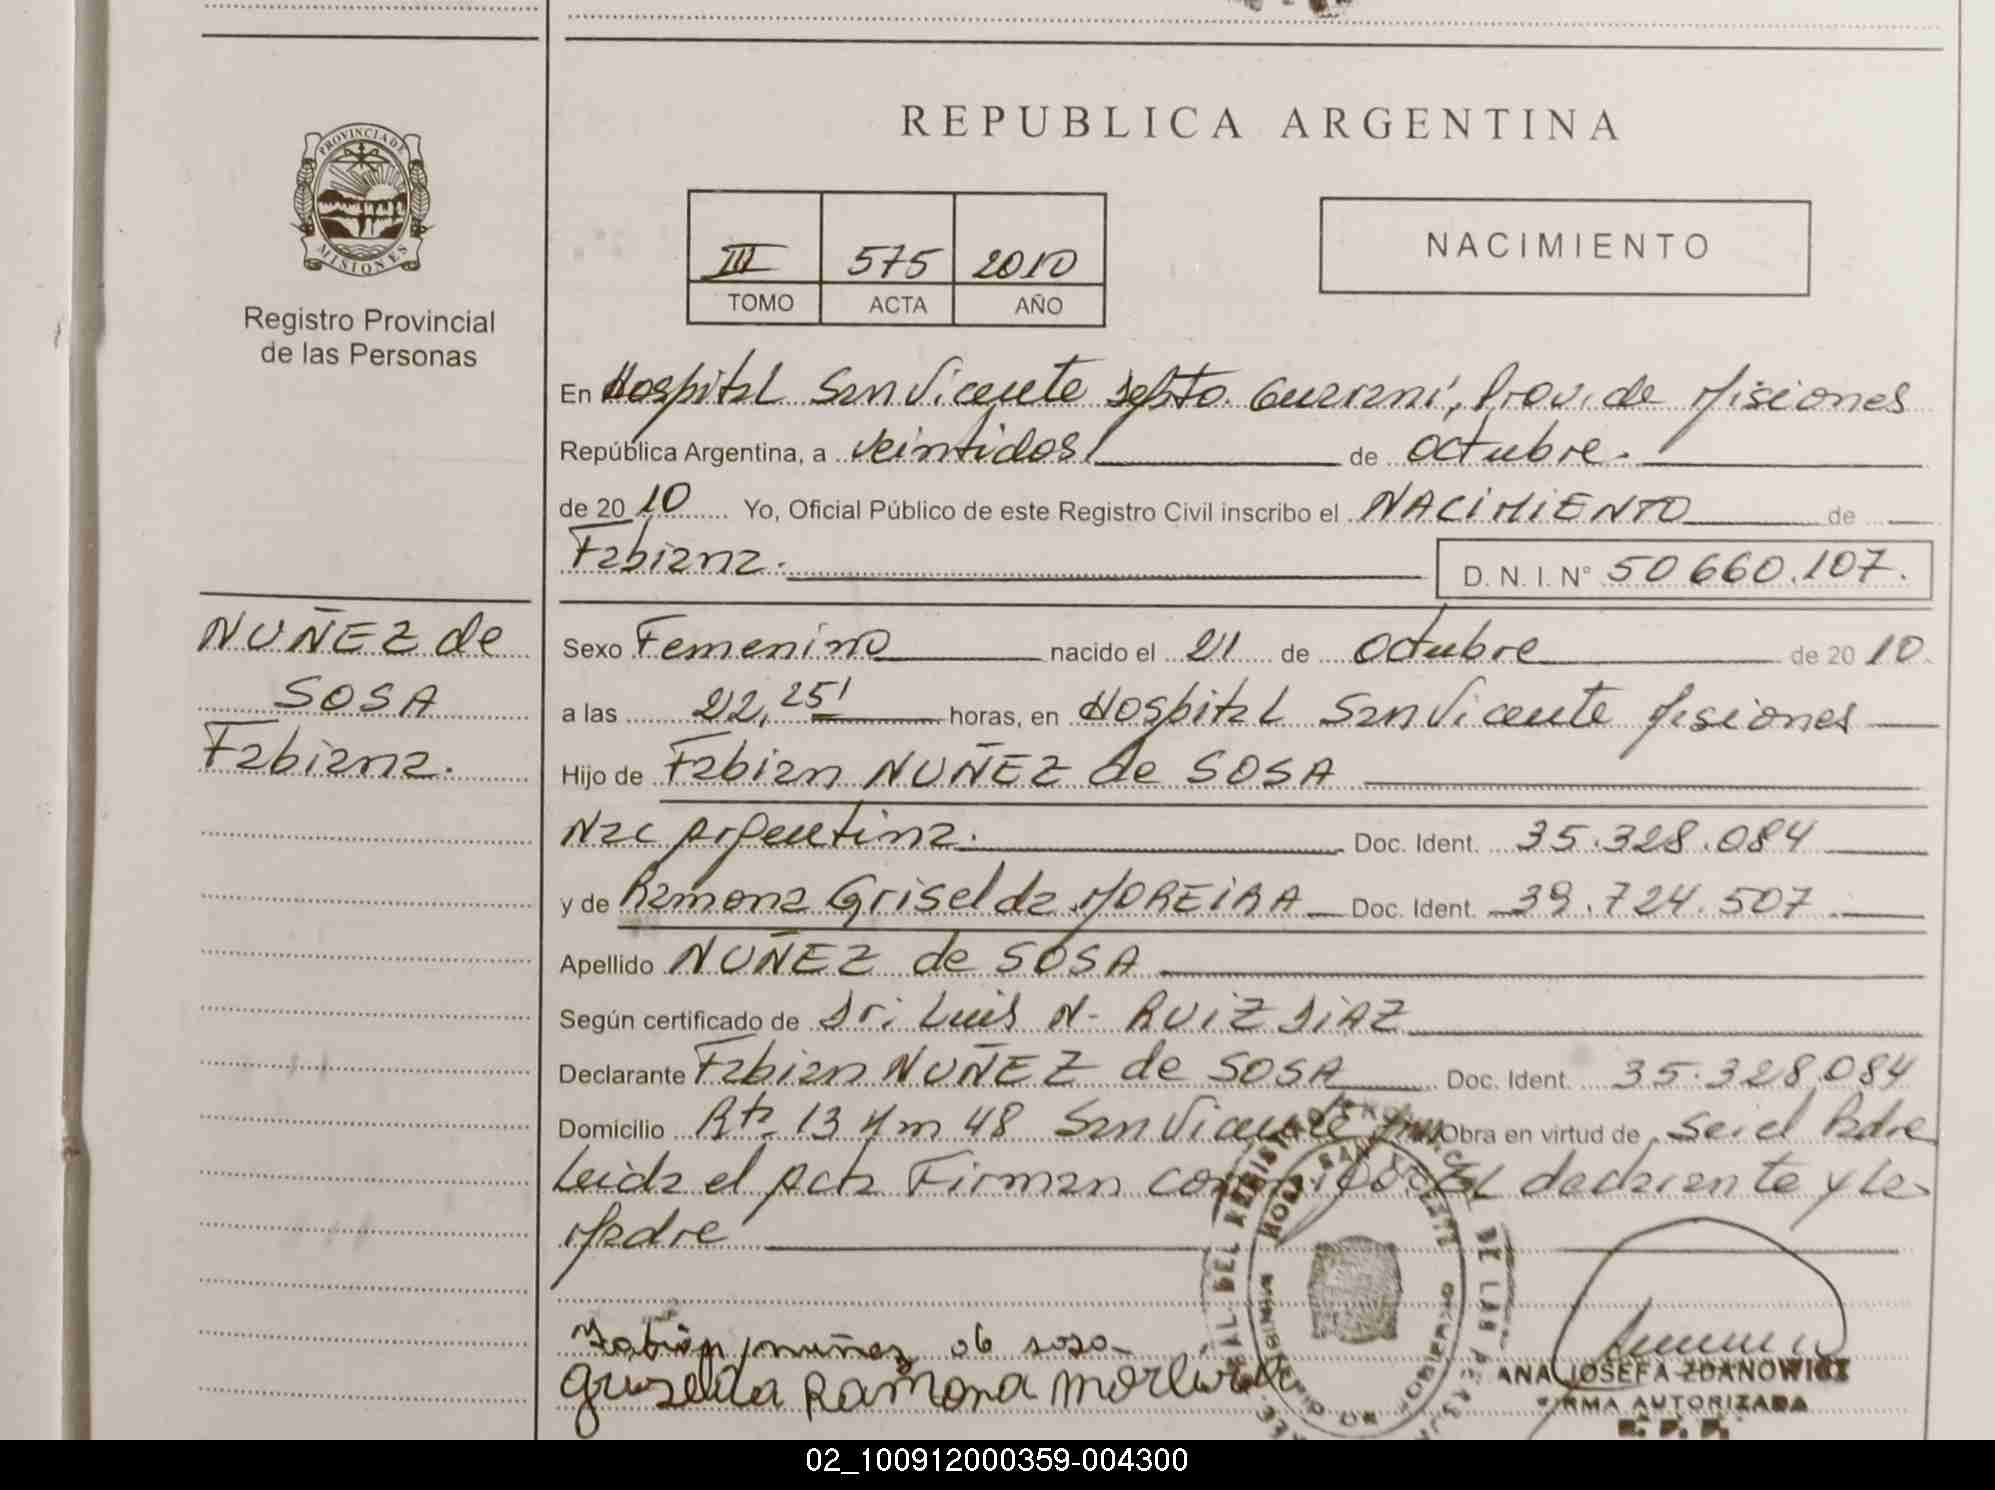 PROVINCIA DE
MISIONES
Registro Provincial
de las Personas
NUÑEZ de
SOSA
Fabiana.
REPUBLICA ARGENTINA
III 575 2010
TOMO ACTA AÑO
NACIMIENTO
En Hospital San Vicente Depto. Guaraní, Prov. de Misiones
República Argentina, a veintidos de octubre.
de 2010 Yo, Oficial Público de este Registro Civil inscribo el NACIMIENTO de
Fabiana. D. N. I. N° 50660.107.
Sexo Femenino nacido el 21 de octubre de 2010.
a las 22,25' horas, en Hospital San Vicente Misiones
Hijo de Fabian NUÑEZ de SOSA
Nac Argentina. Doc. Ident. 35.328.084
y de Ramona Griselda MOREIRA Doc. Ident. 39.724.507
Apellido NUÑEZ de SOSA
Según certificado de Dr: Luis N- RUIZ DIAZ
Declarante Fabian NUÑEZ de SOSA Doc. Ident. 35.328.084
Domicilio Rta 13 Km 48 San Vicente Obra en virtud de ser el Padre
Leida el Acta Firman conmigo: EL declarante y la
Madre
Fabian nuñez de sosa
Griselda Ramona
ANA JOSEFA ZDANOWICZ
FIRMA AUTORIZADA
R. P. P.
02_100912000359-004300